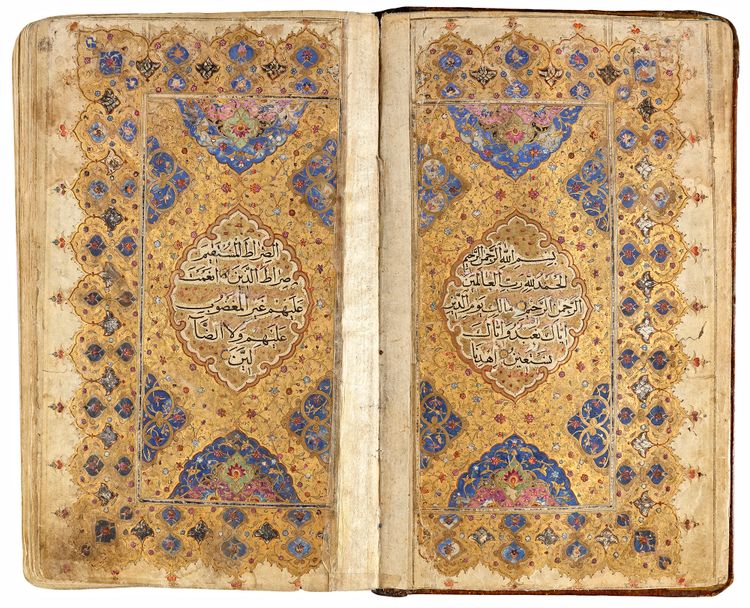 بسم الله الرحمن الرحيم
الحمد لله رب العالمين
الرحمن الرحيم مالك يوم الدين
اياك نعبد و اياك
نستعين اهدنا
الصراط المستقيم
صراط الذين انعمت
عليهم غير المغضوب
عليهم ولا الضا
لين